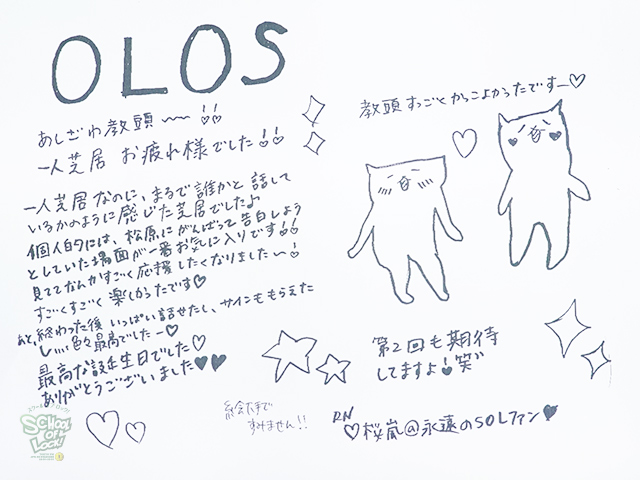 OLOS
あしざわ教頭〜〜!!
一人芝居 お疲れ様でした!!
一人芝居なのに、まるで誰かと話して
いるかのように感じた芝居でしたよ
個人的には、松原にがんばって告白しよう
としていた場面が一番お気に入りです!!
見ててなんかすごく応援したくなりました〜!
すごくすごく楽しかったです♡
あと、終わった後いっぱい話せたし、サインももらえた
し、、、、色々最高でしたー♡
最高な誕生日でした♡
ありがとうございました♥♥
教頭すっごくかっこよかったですー♡
第2回も期待
してますよ!笑
絵金太郎で
すみません!!
RN
♡桜嵐@永遠のSOLファン♥
SCHOOL
OF
LOCK!